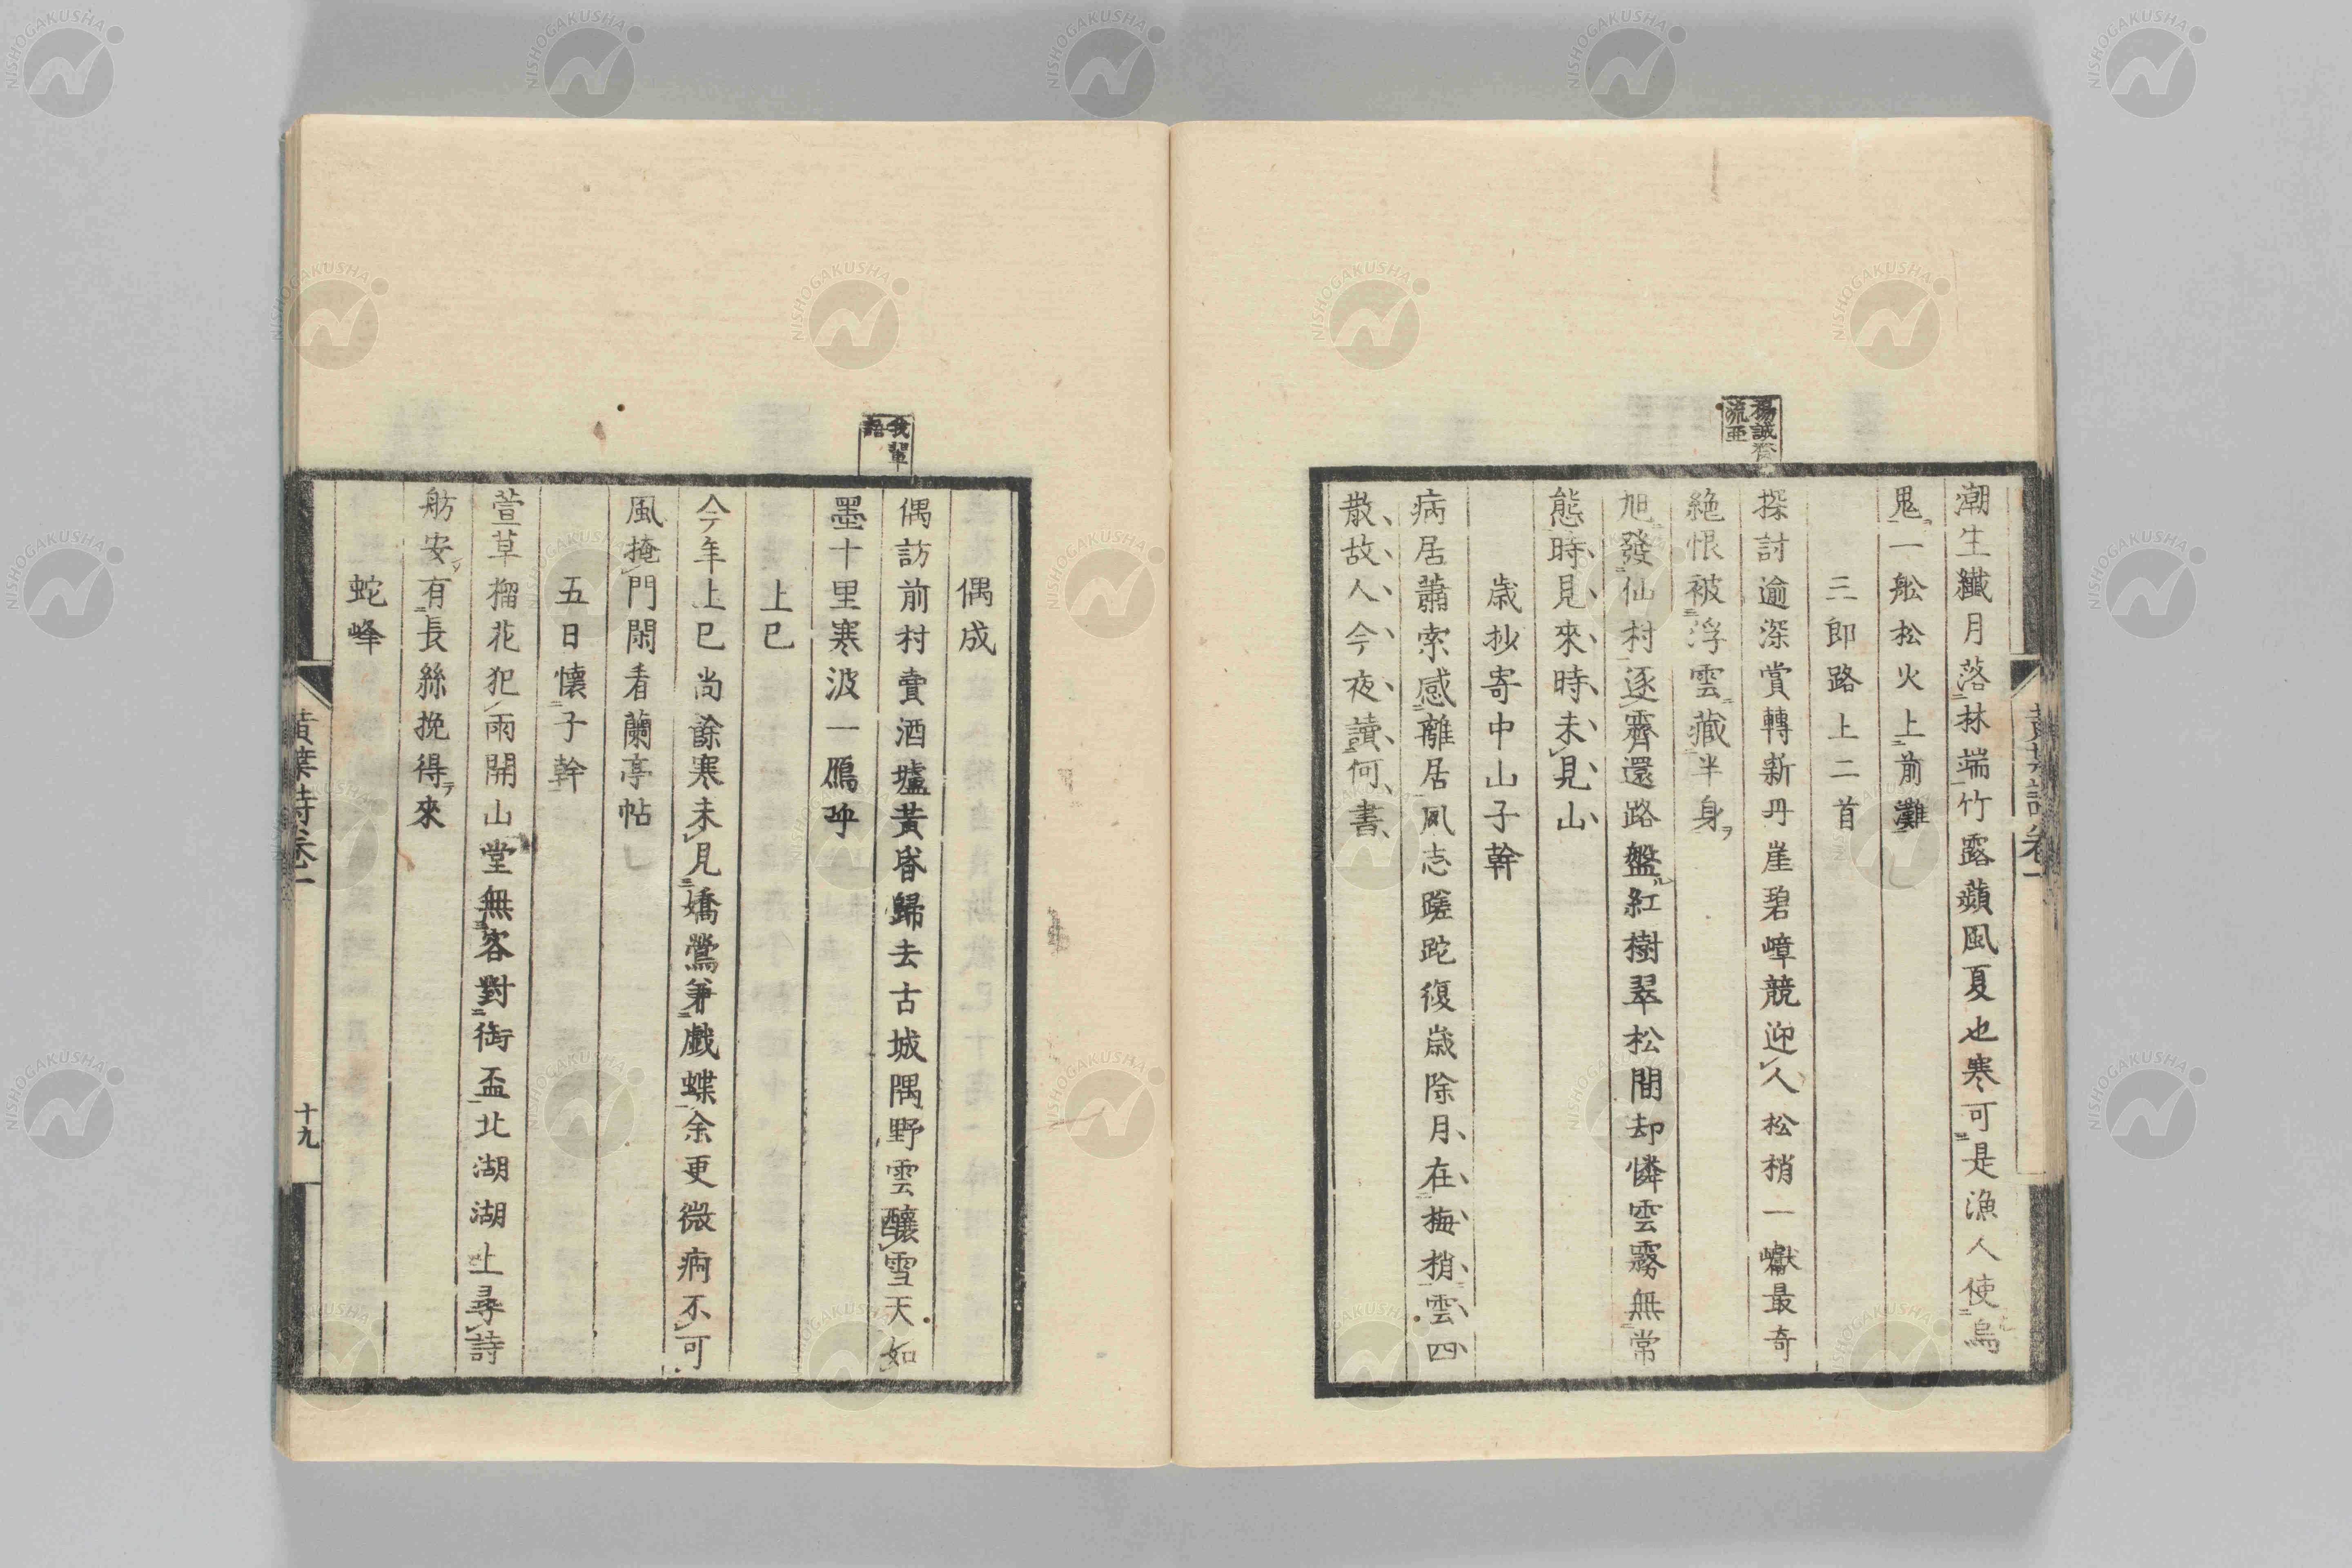 楊誠齋
流亞
潮生纖月落林端竹露蘋風夏也寒可是漁人使烏
鬼一舩松火上前灘
三郎路上二首
探討逾深賞轉新丹崖碧嶂競迎人松梢一巘最奇
絶恨被浮雲藏半身
旭發仙村逐霽還路盤紅樹翠松間却憐雲霧無常
態時見來時未見山
歳抄寄中山子幹
病居蕭索感離居夙志蹉跎復歳除月在梅梢雲四
散故人今夜讀何書
黄葉詩卷一
我輩
語
偶成
偶訪前村賣酒壚黃昏歸去古城隅野雲釀雪天如
墨十里寒波一鴈呼
上巳
今年上巳尚餘寒未見嬌鶯兼戲蝶余更微痾不可
風掩門閑看蘭亭帖
五日懷子幹
萱草榴花犯雨開山堂無客對銜盃北湖湖上尋詩
舫安有長絲挽得來
蛇峰
黄葉詩卷一
十九
NISHOGAKUSHA